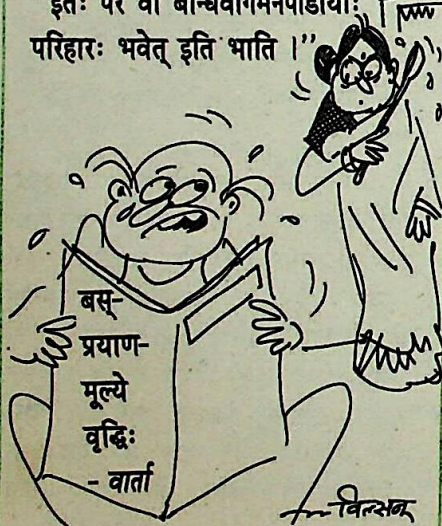 इतः परं वा बान्धवागमनपीडायाः
परिहारः भवेत् इति भाति ।”
बस्-
प्रयाण-
मूल्ये
वृद्धिः
- वार्ता
विल्सन्